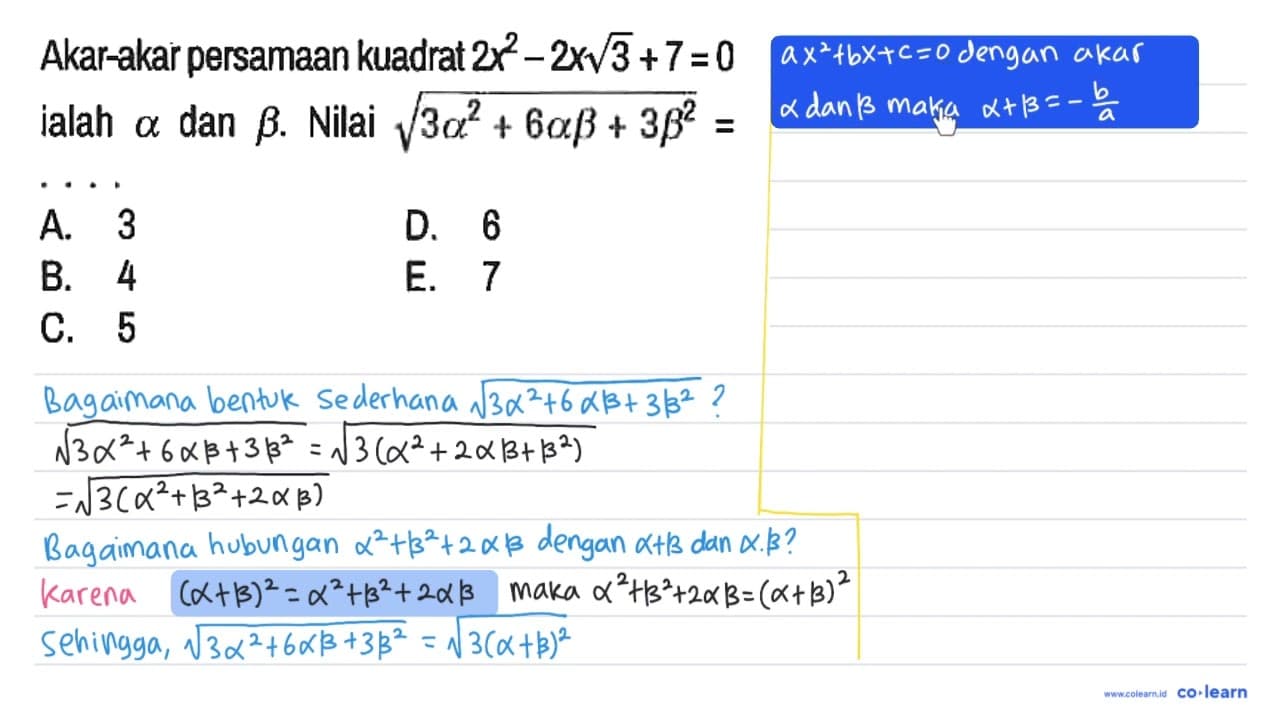 Akar-akar persamaan kuadrat 2x² – 2x√3 + 7 = 0
ialah α dan β. Nilai √(3α² + 6αβ + 3β²) =
. . . .
A. 3
B. 4
C. 5
D. 6
E. 7
ax²+bx+c=0 dengan akar
α dan β maka α+β = -b/a
Bagaimana bentuk sederhana √(3α²+6αβ+3β²) ?
√(3α²+6αβ+3β²) = √(3(α²+2αβ+β²))
=√(3(α²+β²+2αβ))
Bagaimana hubungan α²+β²+2αβ dengan α+β dan α.β?
Karena (α+β)²=α²+β²+2αβ maka α²+β²+2αβ=(α+β)²
Sehingga, √(3α²+6αβ+3β²) = √(3(α+β)²)
www.colearn.id co·learn